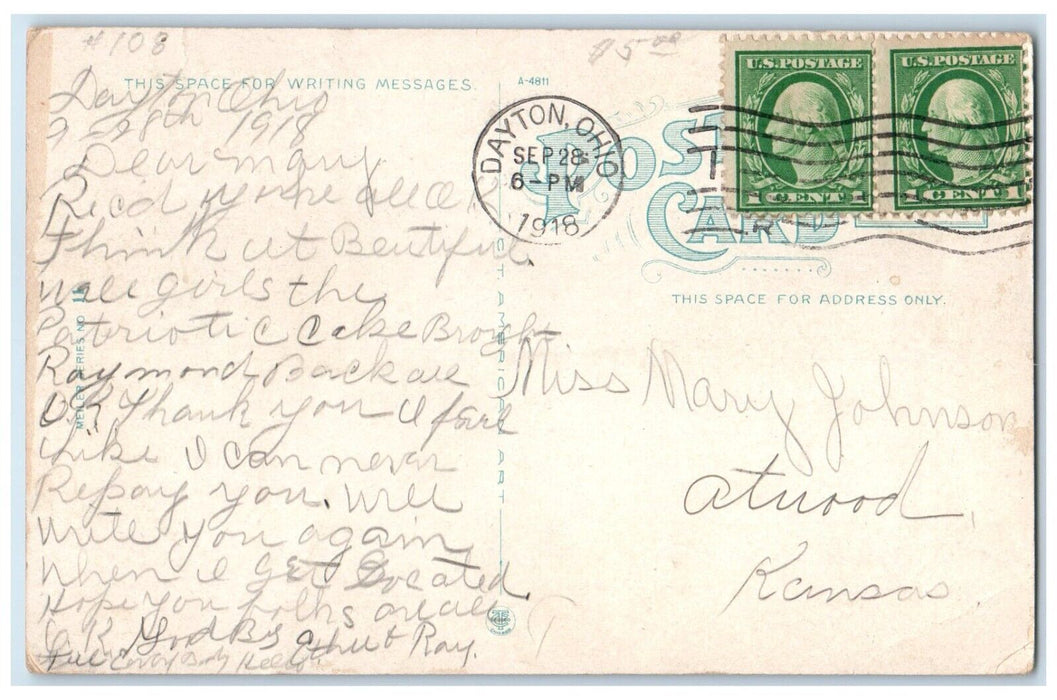 #108
THIS SPACE FOR WRITING MESSAGES.
A-4811
POST CARD
U.S. POSTAGE
1 CENT 1
U.S. POSTAGE
1 CENT 1
DAYTON, OHIO
SEP 28
6-PM
1918
THIS SPACE FOR ADDRESS ONLY.
Dayton Ohio
28th 1918
Dear Mary
Rec'd
Think it Beutiful
well girls the
Patriotic Cake Brought
Raymond Back all
O.K Thank you I feel
like I can never
Repay you. Will
write you again
when I get Located
Hope you folks are all
O.K. Good By
Ray.
Miss Mary Johnson
Atwood,
Kansas.